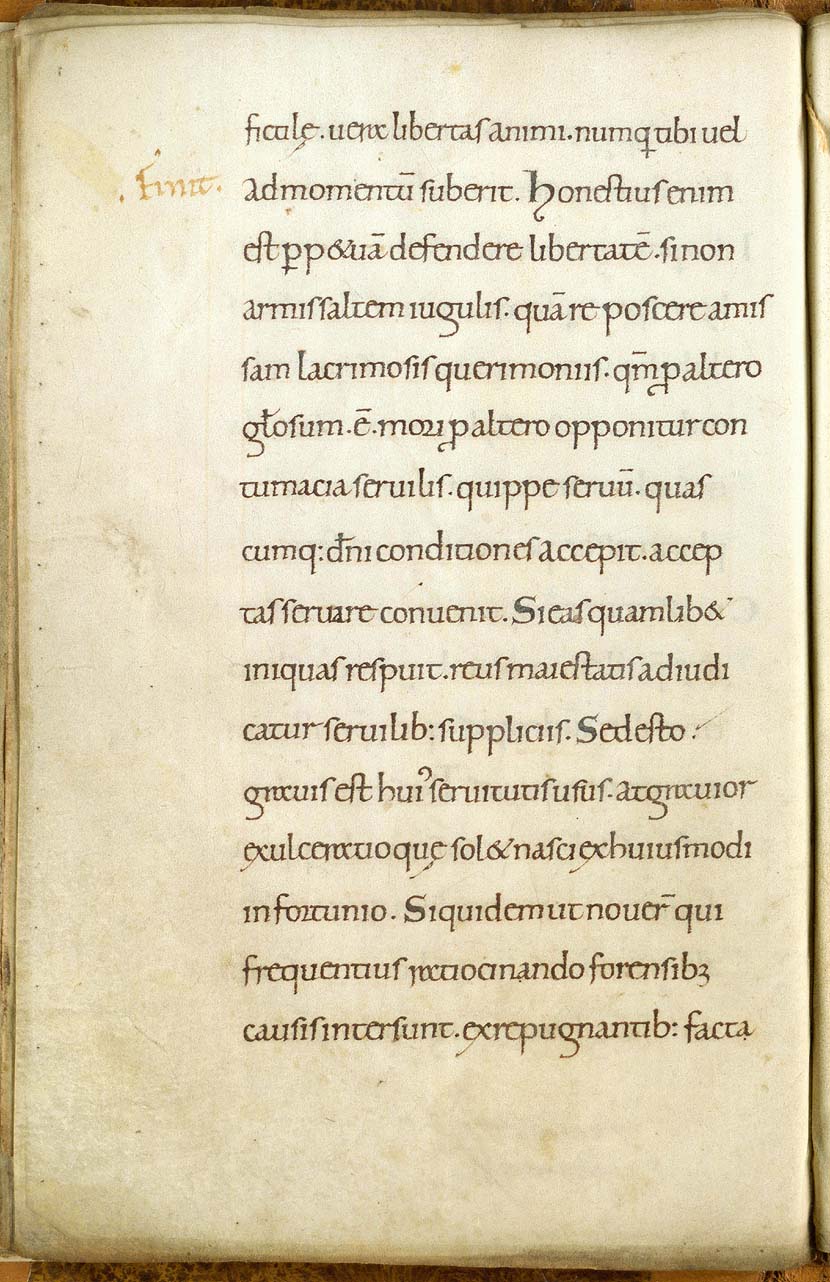 ficile. uera libertas animi. numq tibi uel
.finit.
admomentū suberit. Honestius enim
est ꝑp&uā defendere libertatē. sinon
armis saltem iugulis. quā re poscere amis
sam lacrimosis querimoniis. qm̄ ꝓ altero
gl̄osum. ē. mori ꝓ altero opponitur con
tumacia seruilis. quippe seruū. quas
cumq: dn̄i conditiones accepit. accep
tas seruare conuenit. Si eas quamlib&
iniquas respuit. reus maiestatis adiudi
catur seruilib: suppliciis. Sed esto.
grauis est hui᾽ seruitutis usus. at grauior
exulceratio quę sol& nasci ex huiusmodi
infortunio. Siquidem ut nouer̄ qui
frequentius ratiocinando forensibꝫ
causis intersunt. ex repugnantib: facta